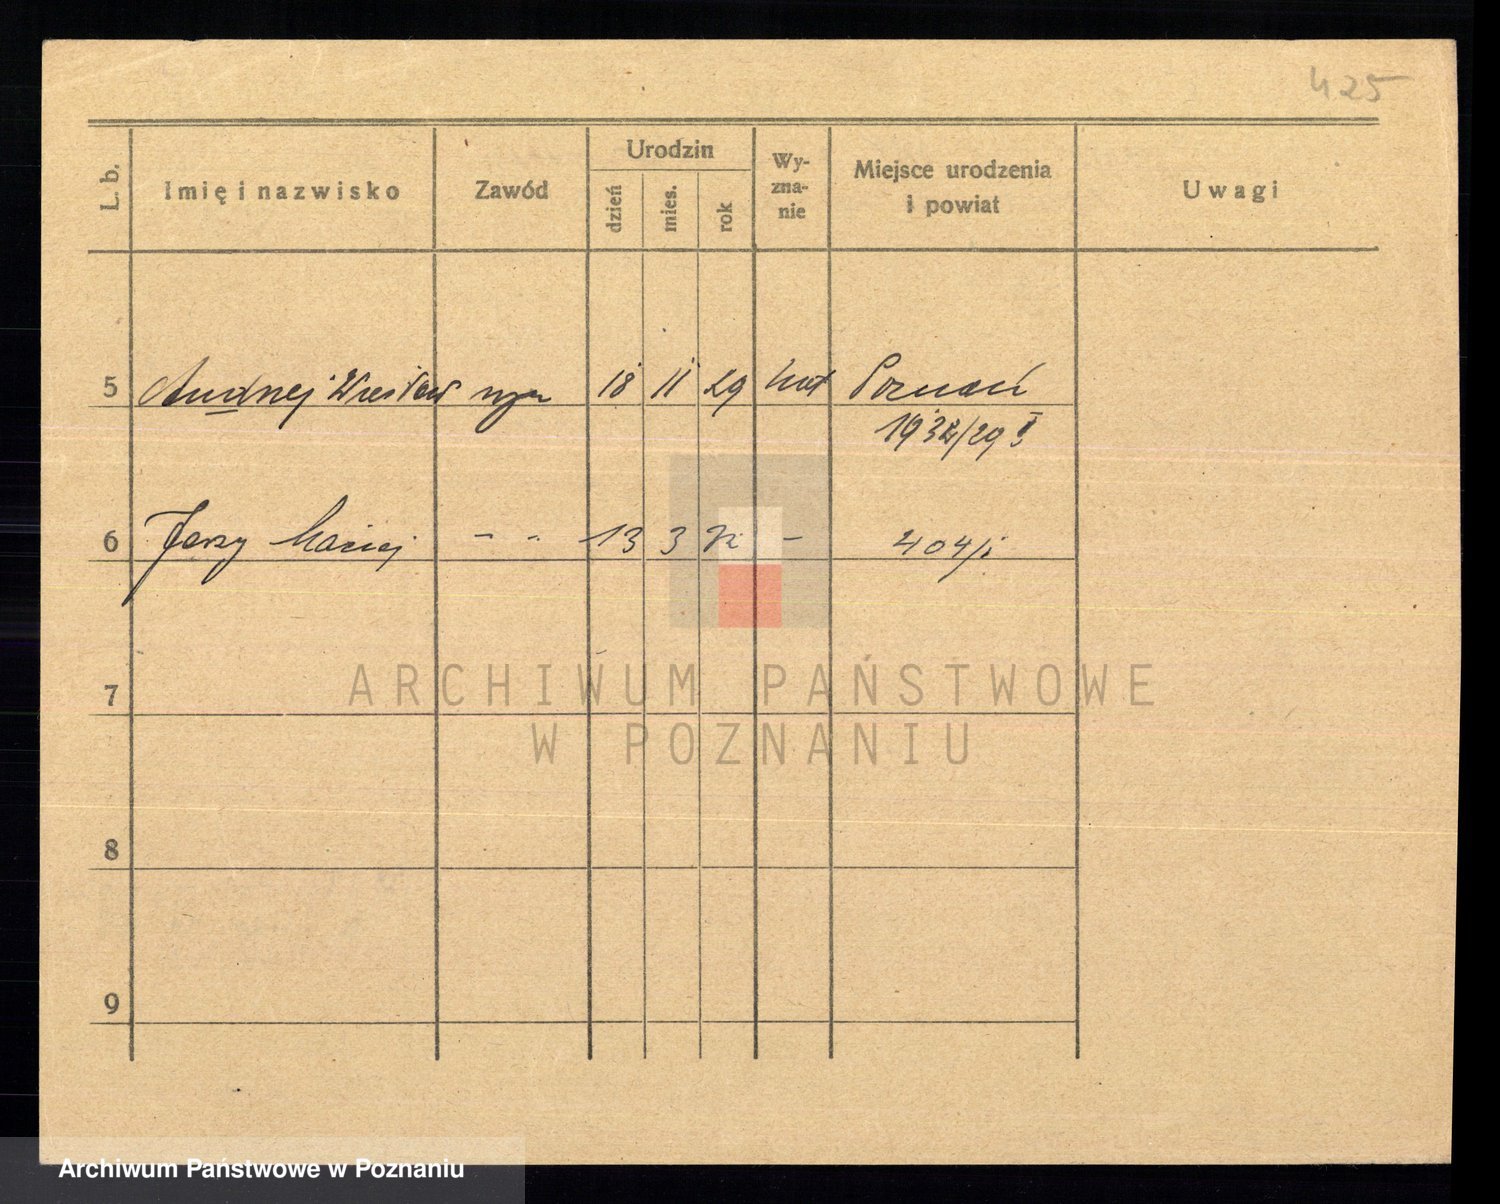 425
L. b. Imię i nazwisko Zawód Urodzin dzień mies. rok Wy-zna-nie Miejsce urodzenia i powiat Uwagi
5 Andrzej Wiesław 18 11 29 kat Poznań
1932/29 I
6 Jerzy Maciej - - 13 3 - 404/
7
8
9
ARCHIWUM PAŃSTWOWE
W POZNANIU
Archiwum Państwowe w Poznaniu